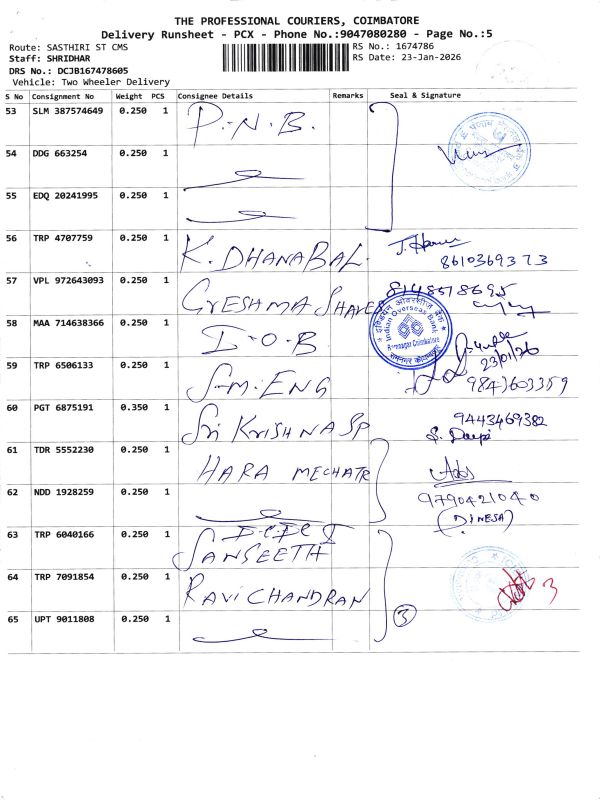 THE PROFESSIONAL COURIERS, COIMBATORE
Delivery Runsheet - PCX - Phone No.:9047080280 - Page No.:5
Route: SASTHIRI ST CMS
RS No.: 1674786
Staff: SHRIDHAR
RS Date: 23-Jan-2026
DRS No.: DCJB167478605
Vehicle: Two Wheeler Delivery
S No Consignment No Weight PCS Consignee Details Remarks Seal & Signature
53 SLM 387574649 0.250 1 P.N.B.
54 DDG 663254 0.250 1
55 EDQ 20241995 0.250 1
56 TRP 4707759 0.250 1 K. DHANABAL
8610369373
57 VPL 972643093 0.250 1 GRESHMA SHARES
8148578695
58 MAA 714638366 0.250 1 I-O-B
Indian Overseas Bank
Ramnagar Coimbatore
23/01/26
59 TRP 6506133 0.250 1 S-M-ENG
9843603359
60 PGT 6875191 0.350 1 Sri KRISHNA SP
9443469382
S. Deepi
61 TDR 5552230 0.250 1 HARA MECHATR
62 NDD 1928259 0.250 1
9790421040
(DINESH)
63 TRP 6040166 0.250 1
SANGEETH
64 TRP 7091854 0.250 1 RAVICHANDRAN
3
65 UPT 9011808 0.250 1
3